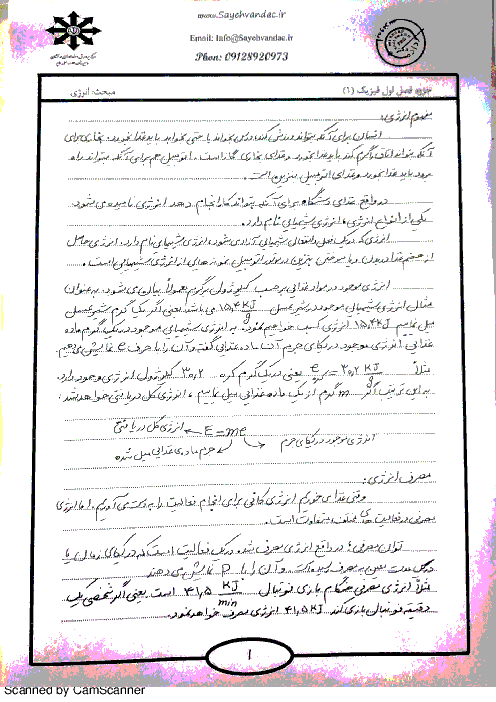 www.Sayehvandac.ir
Email: Info@Sayehvandac.ir
Phon: 09128920973
جزوه فصل اول فیزیک (۱)
مبحث: انرژی
مفهوم انرژی:
انسان برای آنکه بتواند ورزش کند، درس بخواند یا حتی بخوابد باید غذا بخورد. بخاری برای
آنکه بتواند اتاق را گرم کند باید غذا بخورد و غذای بخاری گاز است. اتومبیل هم برای آنکه بتواند راه
برود باید غذا بخورد و غذای اتومبیل بنزین است.
در واقع غذای دستگاه برای آنکه بتواند کار انجام دهد انرژی نامیده می شود.
یکی از انواع انرژی، انرژی شیمیایی نام دارد.
انرژی که در یک فعل و انفعال شیمیایی آزاد می شود، انرژی شیمیایی نام دارد. انرژی حاصل
از هضم غذا در بدن و یا سوختن بنزین در موتور اتومبیل نمونه هایی از انرژی شیمیایی است.
انرژی موجود در مواد غذایی بر حسب کیلوژول بر گرم معمولاً بیان می شود. به عنوان
مثال انرژی شیمیایی موجود در شیر عسل ۱۵٫۴ KJ می باشد یعنی اگر یک گرم شیر عسل
میل نماییم ۱۵٫۴ KJ انرژی کسب خواهیم نمود. به انرژی شیمیایی موجود در یک گرم ماده
غذایی انرژی موجود در یکای جرم آن ماده غذایی گفته و آن را با حرف e نمایش می دهیم
مثلاً e = ۳۰٫۲ KJ/gr یعنی در یک گرم کره ۳۰٫۲ کیلوژول انرژی وجود دارد.
به این ترتیب اگر m گرم از یک ماده غذایی میل نماییم، انرژی کل دریافتی خواهد شد:
E = me انرژی کل دریافتی
انرژی موجود در یکای جرم
جرم ماده ی غذایی میل شده
مصرف انرژی:
وقتی غذا می خوریم انرژی کافی برای انجام فعالیت را به دست می آوریم. اما انرژی
مصرفی در فعالیت های مختلف متفاوت است.
توان مصرفی: در واقع انرژی مصرف شده در یک فعالیت است که در یکای زمان یا
مدت معین به مصرف رسیده است و آن را با P نمایش می دهند
مثلاً انرژی مصرفی هنگام بازی فوتبال ۴۱٫۵ KJ/min است یعنی اگر شخصی یک
دقیقه فوتبال بازی کند ۴۱٫۵ KJ انرژی مصرف خواهد نمود.
۱
Scanned by CamScanner